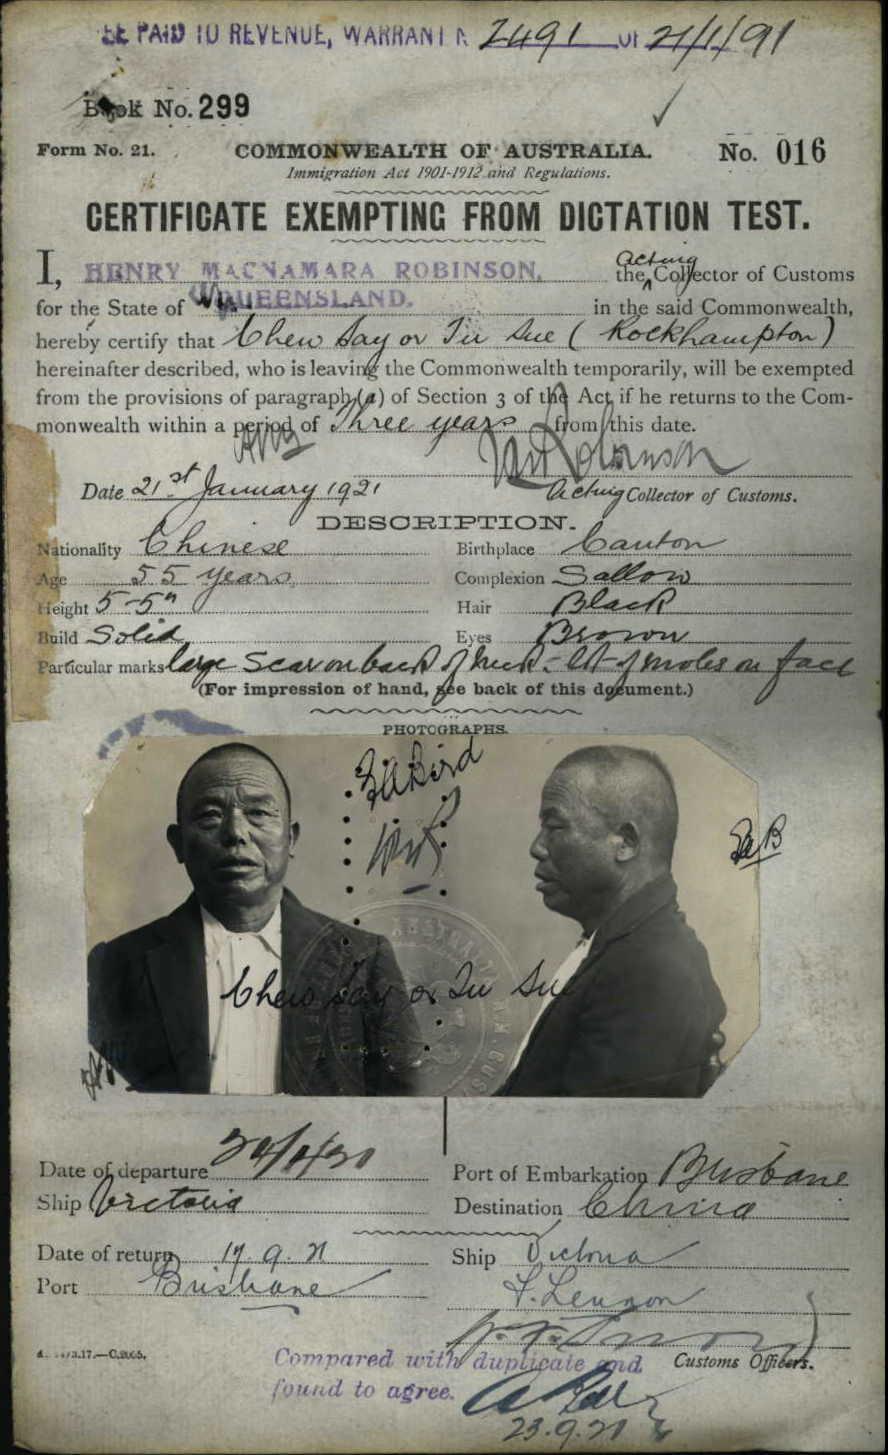 PAID TO REVENUE, WARRANT N 2491 OF 21/1/91
Book No. 299
Form No. 21. COMMONWEALTH OF AUSTRALIA. No. 016
Immigration Act 1901-1912 and Regulations.
CERTIFICATE EXEMPTING FROM DICTATION TEST.
I, HENRY MACNAMARA ROBINSON, the Acting Collector of Customs
for the State of QUEENSLAND. in the said Commonwealth,
hereby certify that Chew Say or Tu Sue (Rockhampton)
hereinafter described, who is leaving the Commonwealth temporarily, will be exempted
from the provisions of paragraph (a) of Section 3 of the Act if he returns to the Com-
monwealth within a period of Three years from this date.
Robinson
Date 21st January 1921 Acting Collector of Customs.
DESCRIPTION.
Nationality Chinese Birthplace Canton
Age 55 years Complexion Sallow
Height 5-5" Hair Black
Build Solid Eyes Brown
Particular marks large Scar on back of neck - lot of moles on face
(For impression of hand, see back of this document.)
PHOTOGRAPHS.
Bird
Chew Say or Tu Sue
Date of departure Port of Embarkation Brisbane
Ship Victoria Destination China
Date of return 17.9.21 Ship Victoria
Port Brisbane F. Lennon
Customs Officers.
Compared with duplicate and
found to agree.
23.9.21